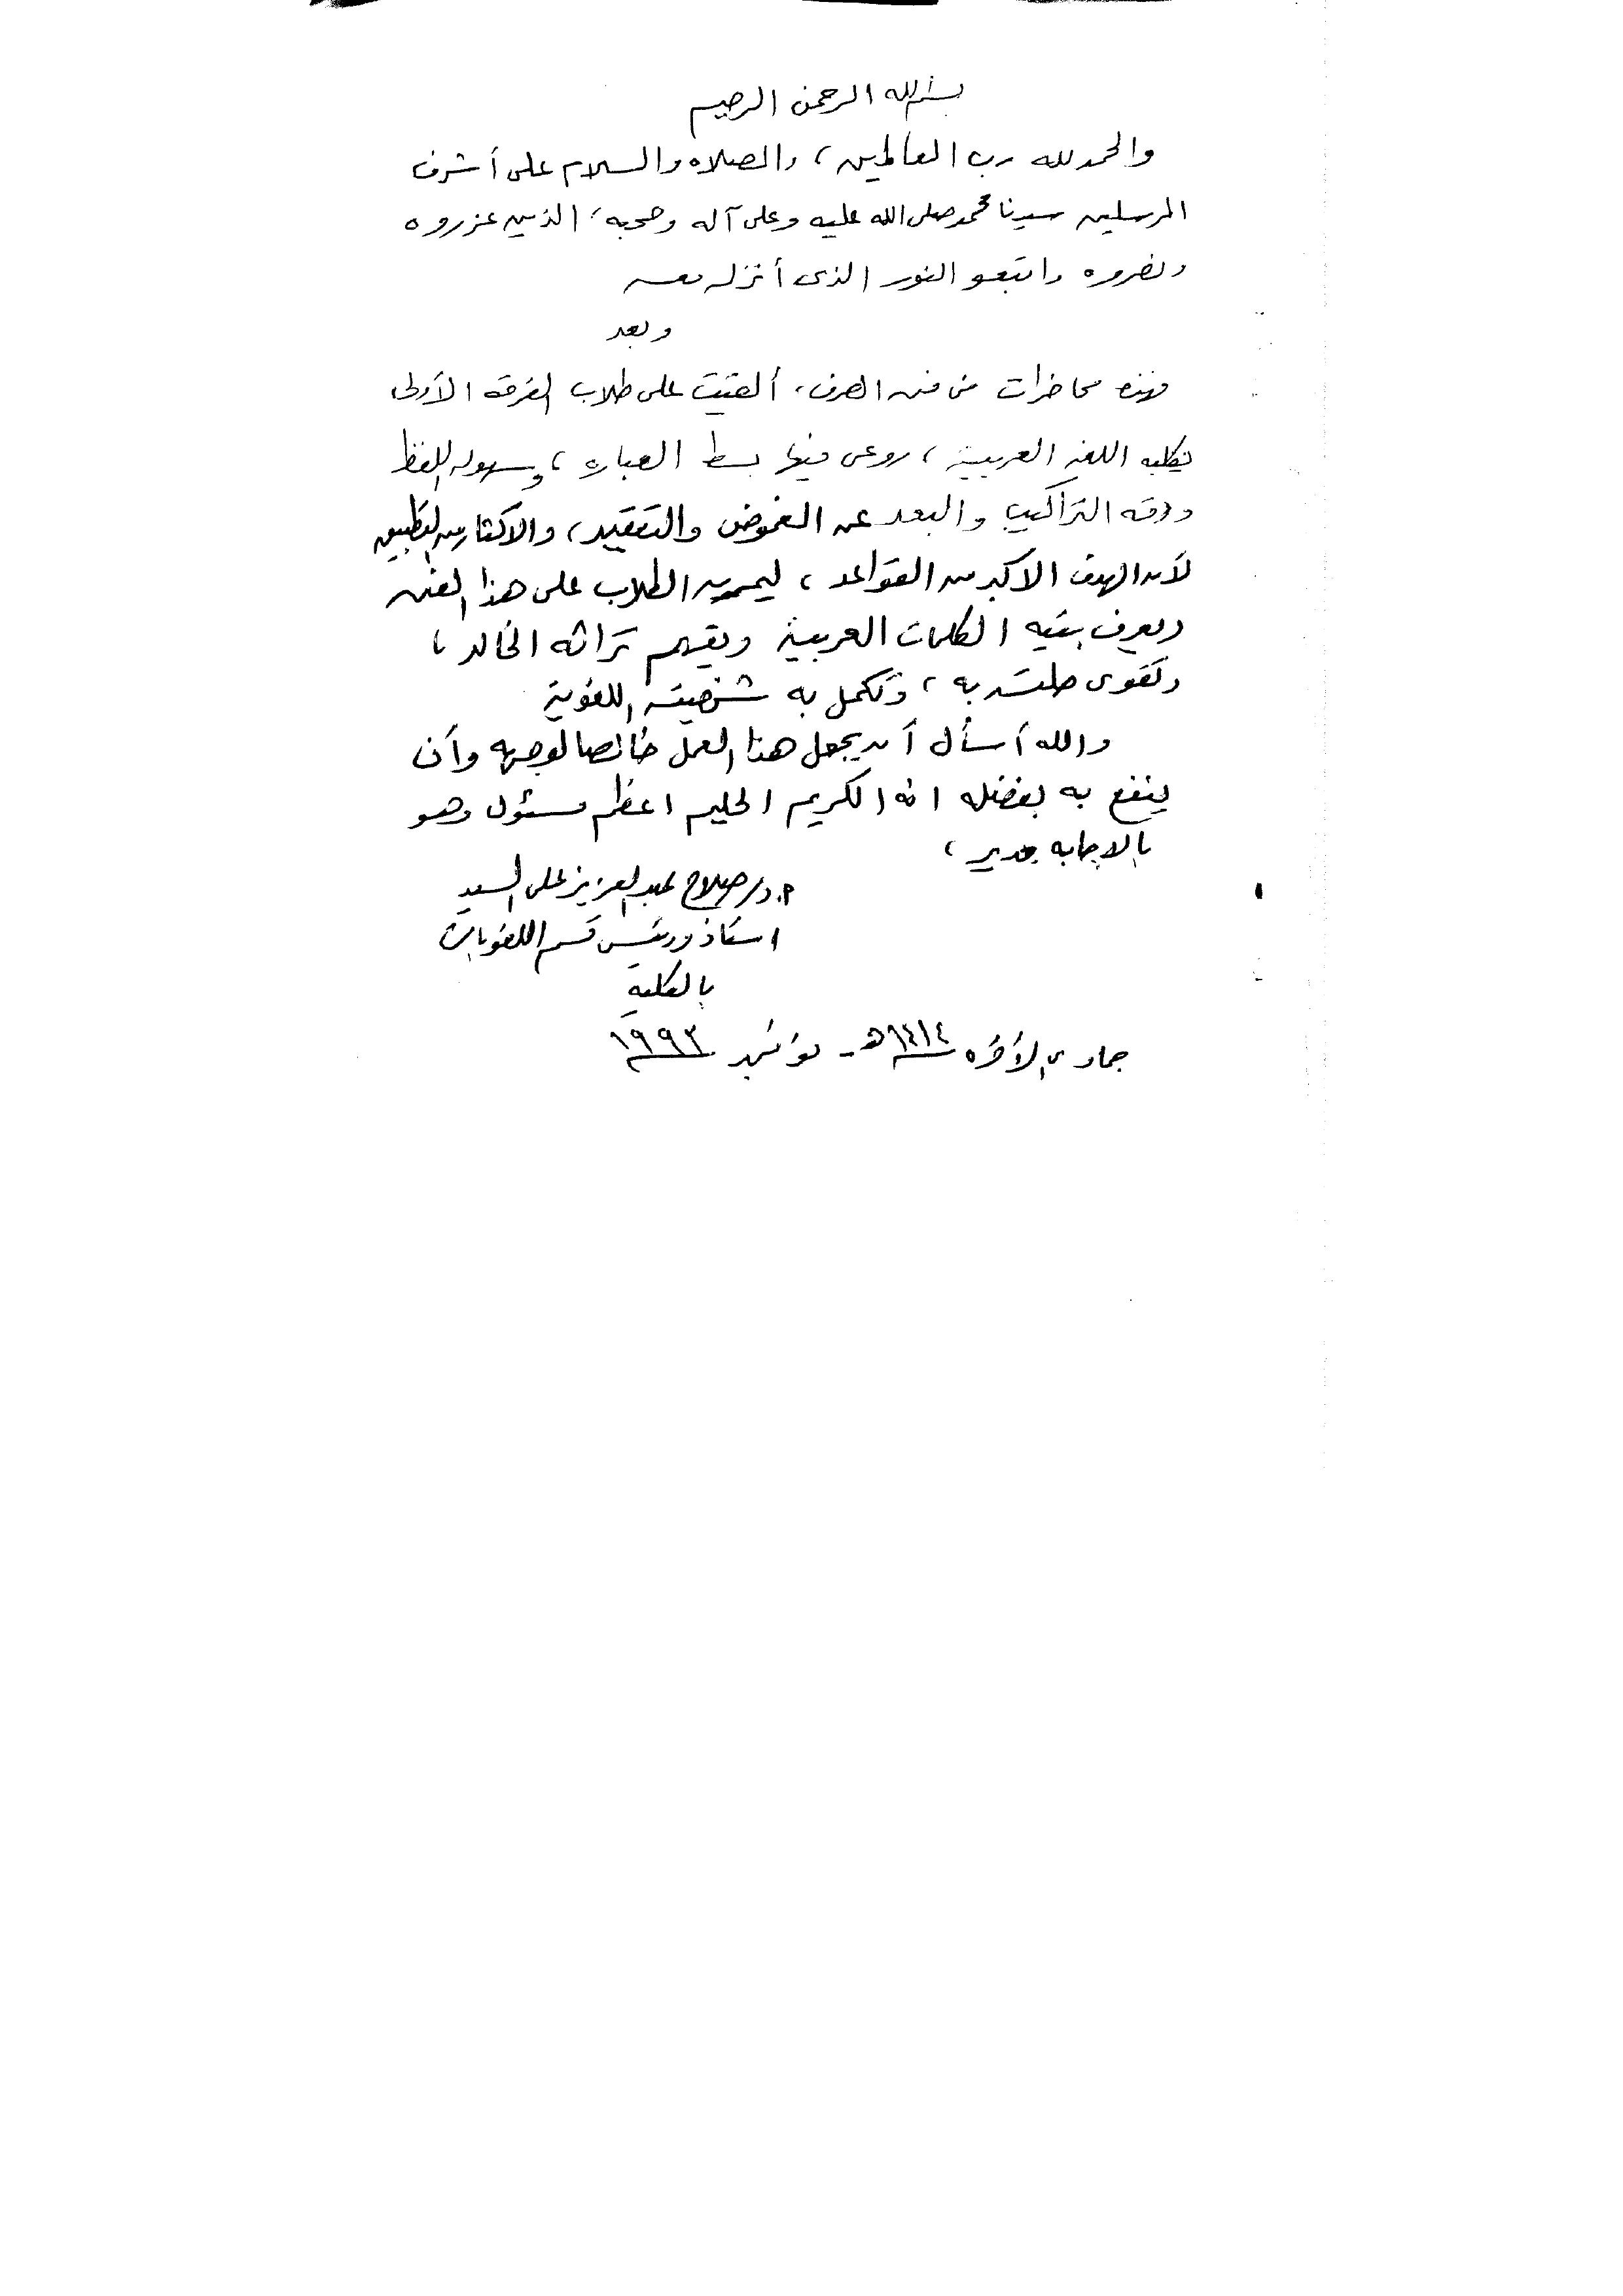 بسم الله الرحمن الرحيم
والحمد لله رب العالمين ، والصلاه والسلام على أشرف
المرسلين سيدنا محمد صلى الله عليه وعلى آله وصحبه ، الذين عزروه
ونصروه واتبعو النور الذى أنزل معه
وبعد
فهذه محاضرات فى فن الصرف ، ألقيت على طلاب الفرقه الأولى
بكليه اللغة العربية ، روعى فيها بسط العباره ، وسهوله اللفظ
ودقه التراكيب والبعد عن الغموض والتعقيد ، والاكثار من التطبيق
لأن الهدف الاكبر من القواعد ، ليمرن الطلاب على هذا الفن
ويعرف بنيه الكلمات العربية ويفهم تراثه الخالد ،
وتقوى صلته به ، وتكمل به شخصيته اللغوية
والله أسأل أن يجعل هذا العمل خالصا لوجهه وأن
ينفع به بفضله انه الكريم الحليم اعظم مسئول وهو
بالاجابه جدير ،
أ.د/ صلاح عبد العزيز على السيد
استاذ ورئيس قسم اللغويات
بالكلية
جمادى الأخره ١٤١٤ هـ - نوفمبر ١٩٩٣